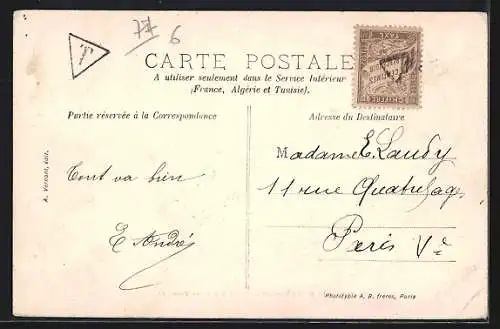 77
6
T
CARTE POSTALE
A utiliser seulement dans le Service Intérieur
(France, Algérie et Tunisie).
Partie réservée à la Correspondance
Adresse du Destinataire
Tout va bien
E André
Madame E. Laudy
11 rue Quatrefages
Paris Ve
A. Vernant, édit.
Phototypie A. B. frères, Paris